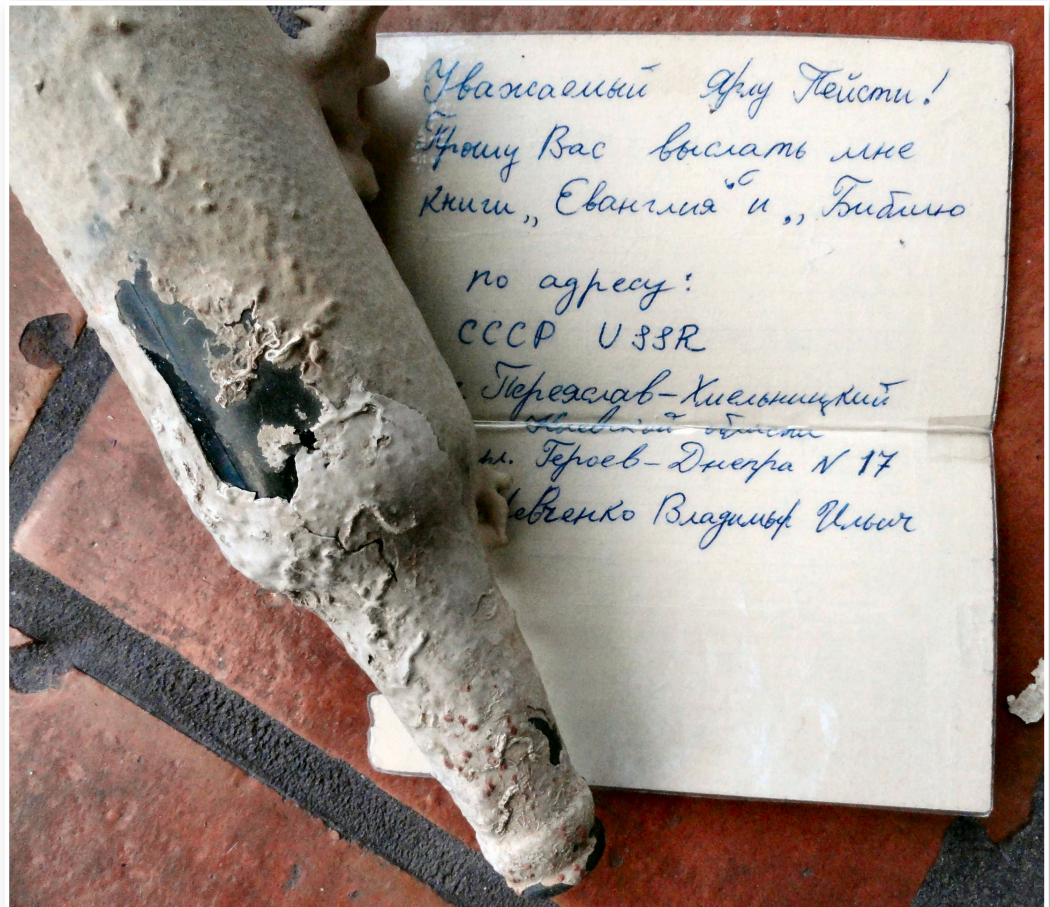 Уважаемый Ярлу Пейсти!
Прошу Вас выслать мне
книги „Еванглия“ и „Библию
по адресу:
СССР USSR
Переяслав-Хмельницкий
Киевской области
Героев-Днепра N 17
Владимыр Ильич